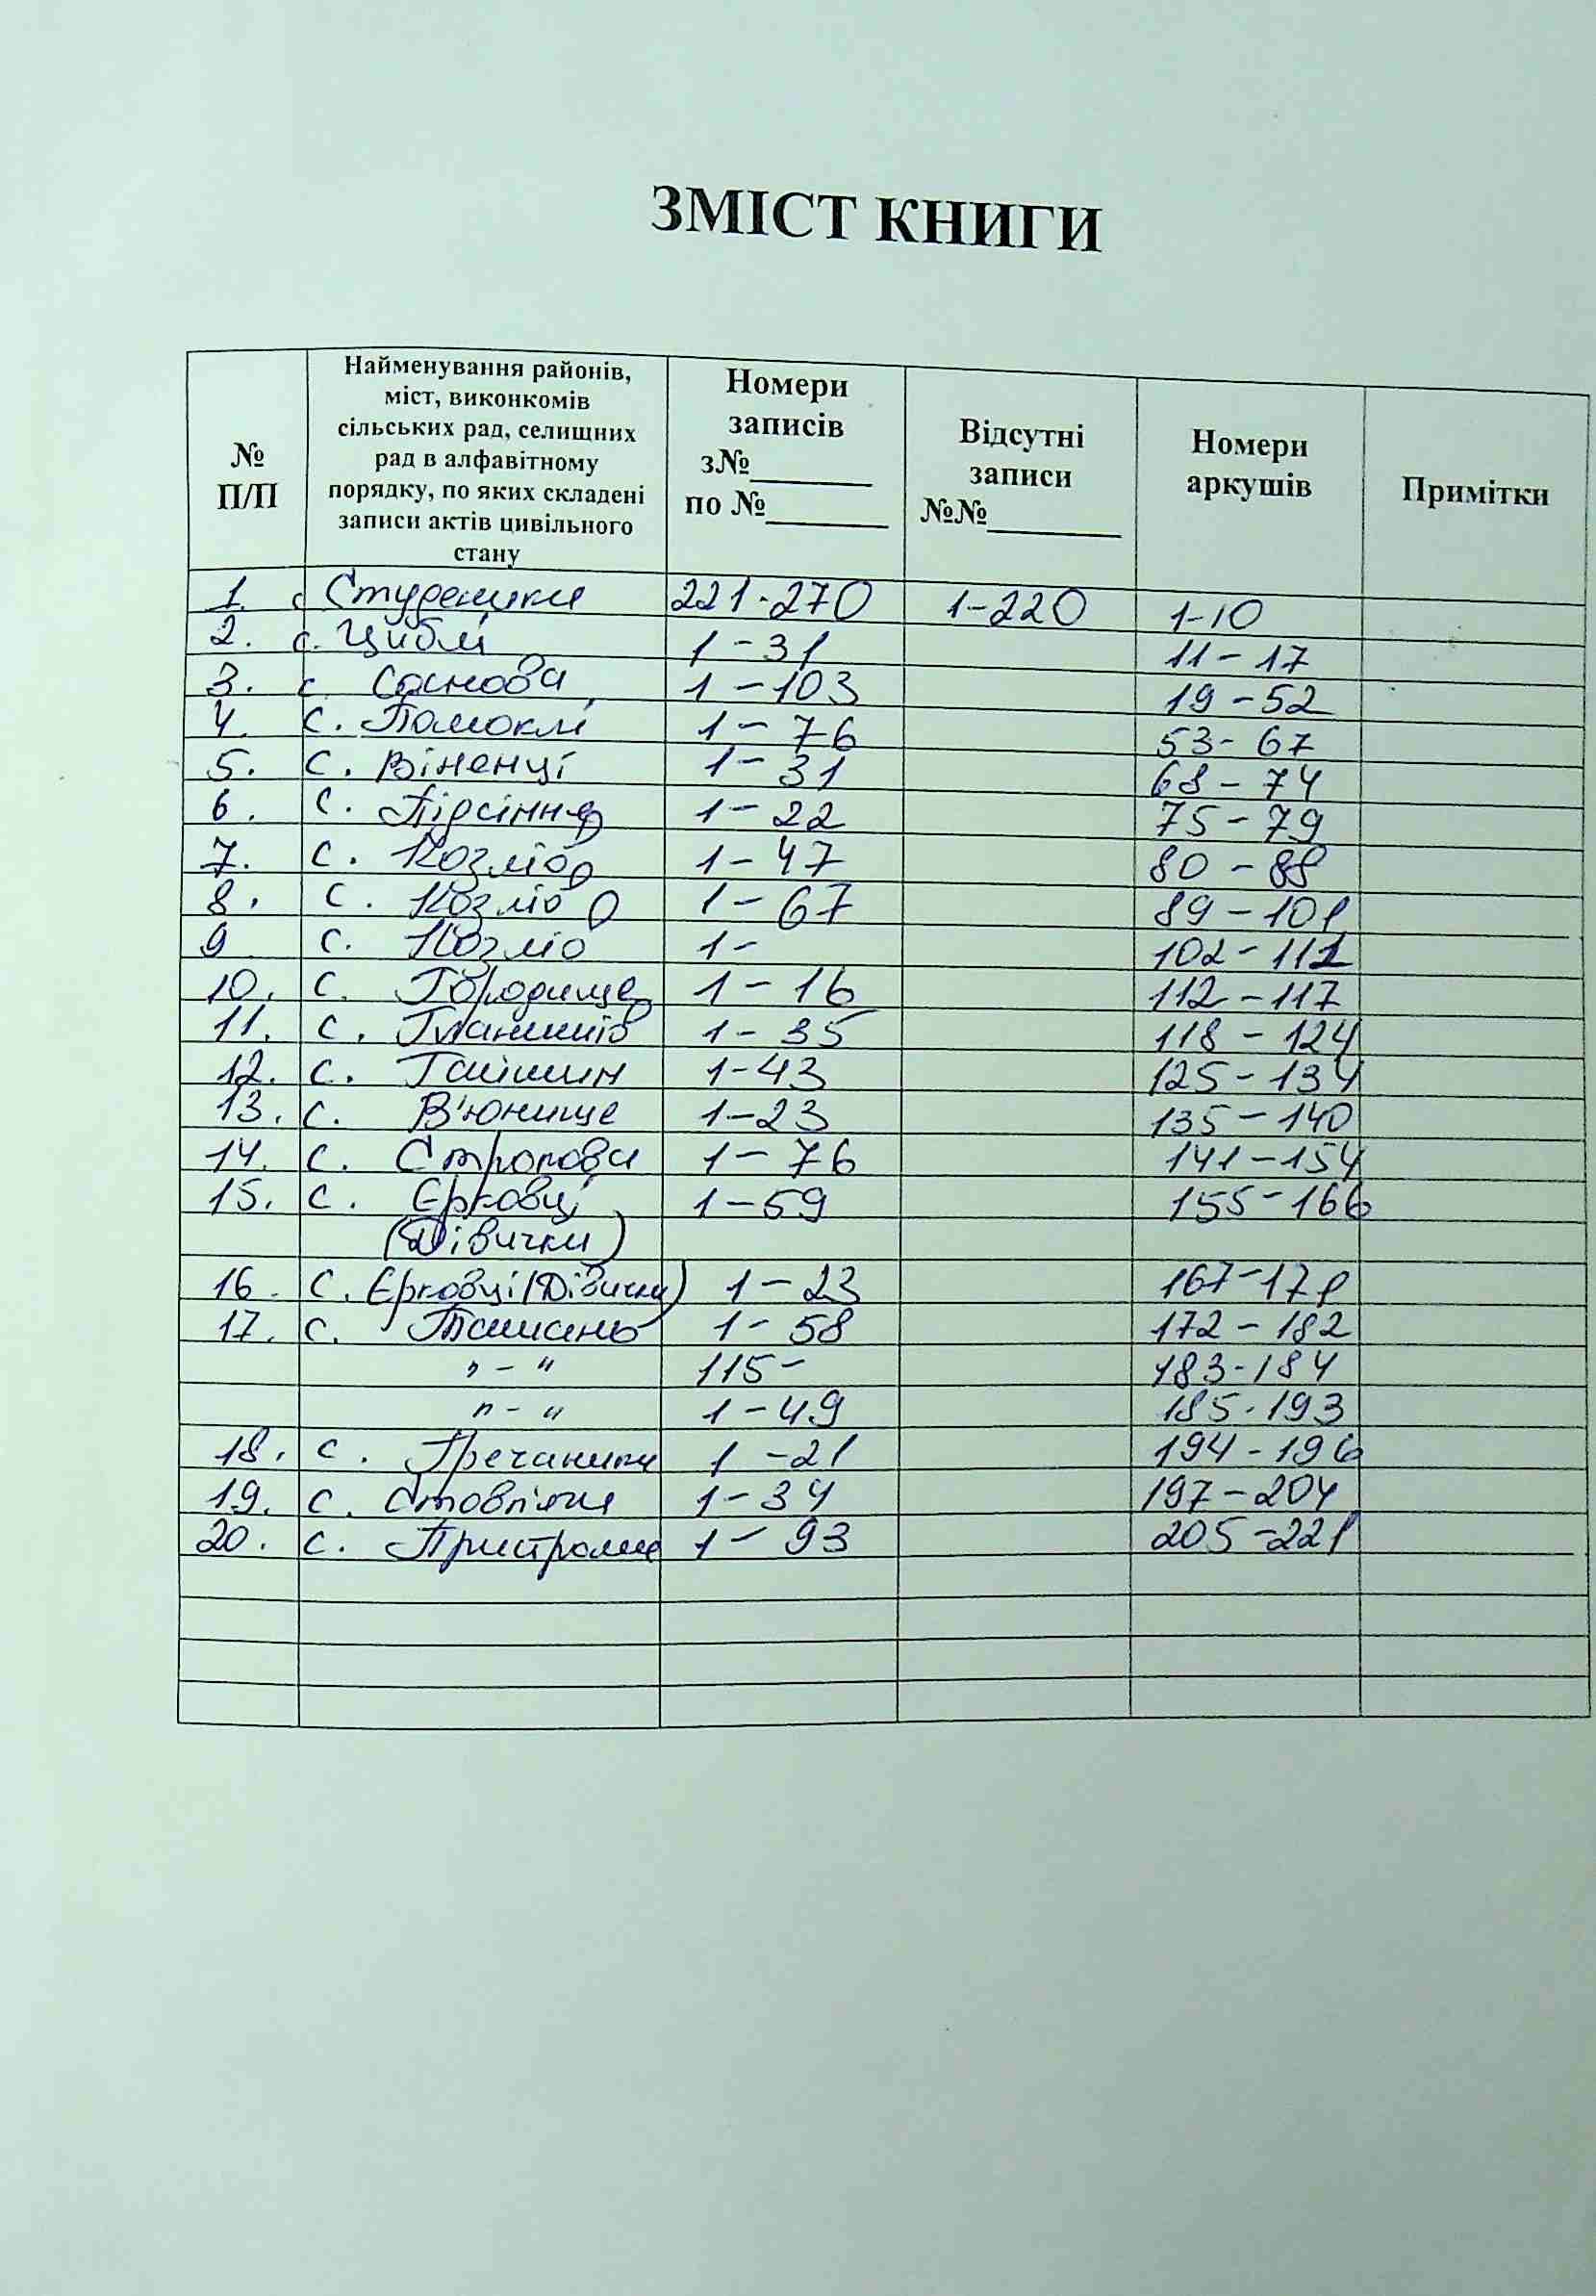 ЗМІСТ КНИГИ
№ П/П
Найменування районів,
міст, виконкомів
сільських рад, селищних
рад в алфавітному
порядку, по яких складені
записи актів цивільного
стану
Номери
записів
з№
по №
Відсутні
записи
№№
Номери
аркушів
Примітки
1. с Студеники 221-270 1-220 1-10
2. с. Циблі 1-31 11-17
3. с. Соснова 1-103 19-52
4. с. Помоклі 1-76 53-67
5. с. Віненці 1-31 68-74
6. с. Підсінне 1-22 75-79
7. с. Козлів 1-47 80-88
8. с. Козлів 1-67 89-101
9 с. Козлів 1- 102-111
10. с. Городище 1-16 112-117
11. с. 1-35 118-124
12. с. Гайшин 1-43 125-134
13. с. В'юнище 1-23 135-140
14. с. Строкова 1-76 141-154
15. с. Єрковці 1-59 155-166
(Дівички)
16. с. Єрковці (Дівички) 1-23 167-171
17. с. Ташань 1-58 172-182
„-“ 115- 183-184
„-“ 1-49 185-193
18. с. Гречаники 1-21 194-196
19. с. Стовп'яги 1-34 197-204
20. с. Пристроми 1-93 205-221